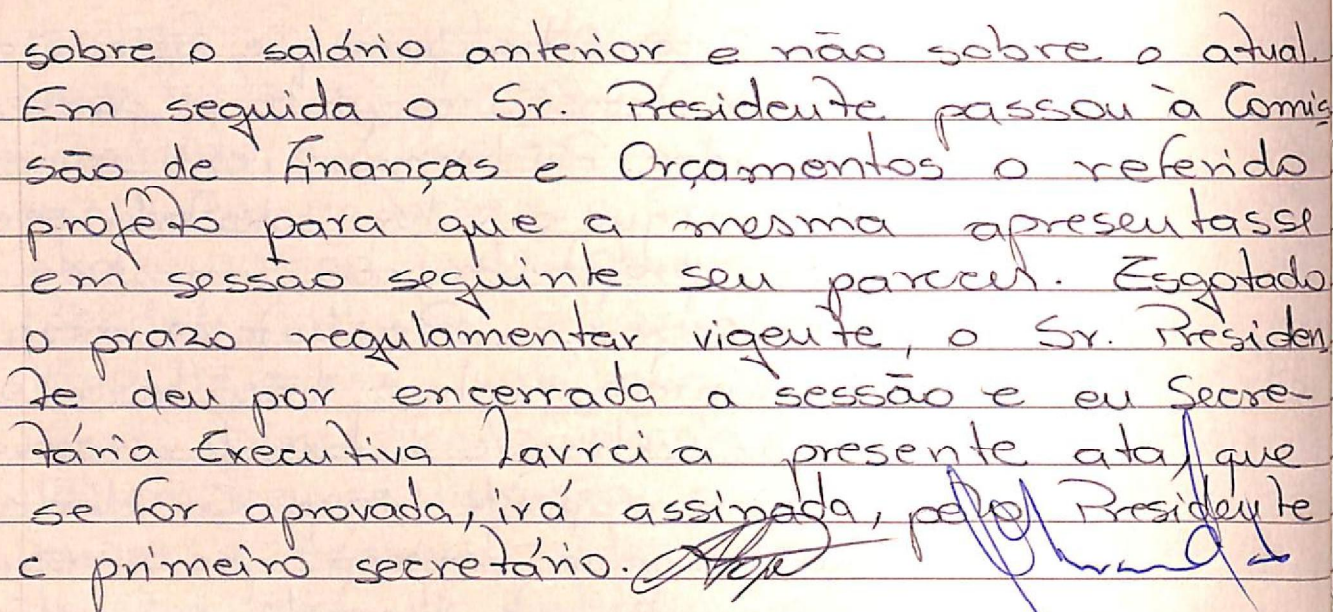 sobre o salário anterior e não sobre o atual.
Em seguida o Sr. Presidente passou à Comis
são de Finanças e Orçamentos o referido
projeto para que a mesma apresentasse
em sessão seguinte seu parecer. Esgotado
o prazo regulamentar vigente, o Sr. Presiden
te deu por encerrada a sessão e eu Secre-
tária Executiva lavrei a presente ata, que
se for aprovada, irá assinada, pelo Presidente
e primeiro secretário.